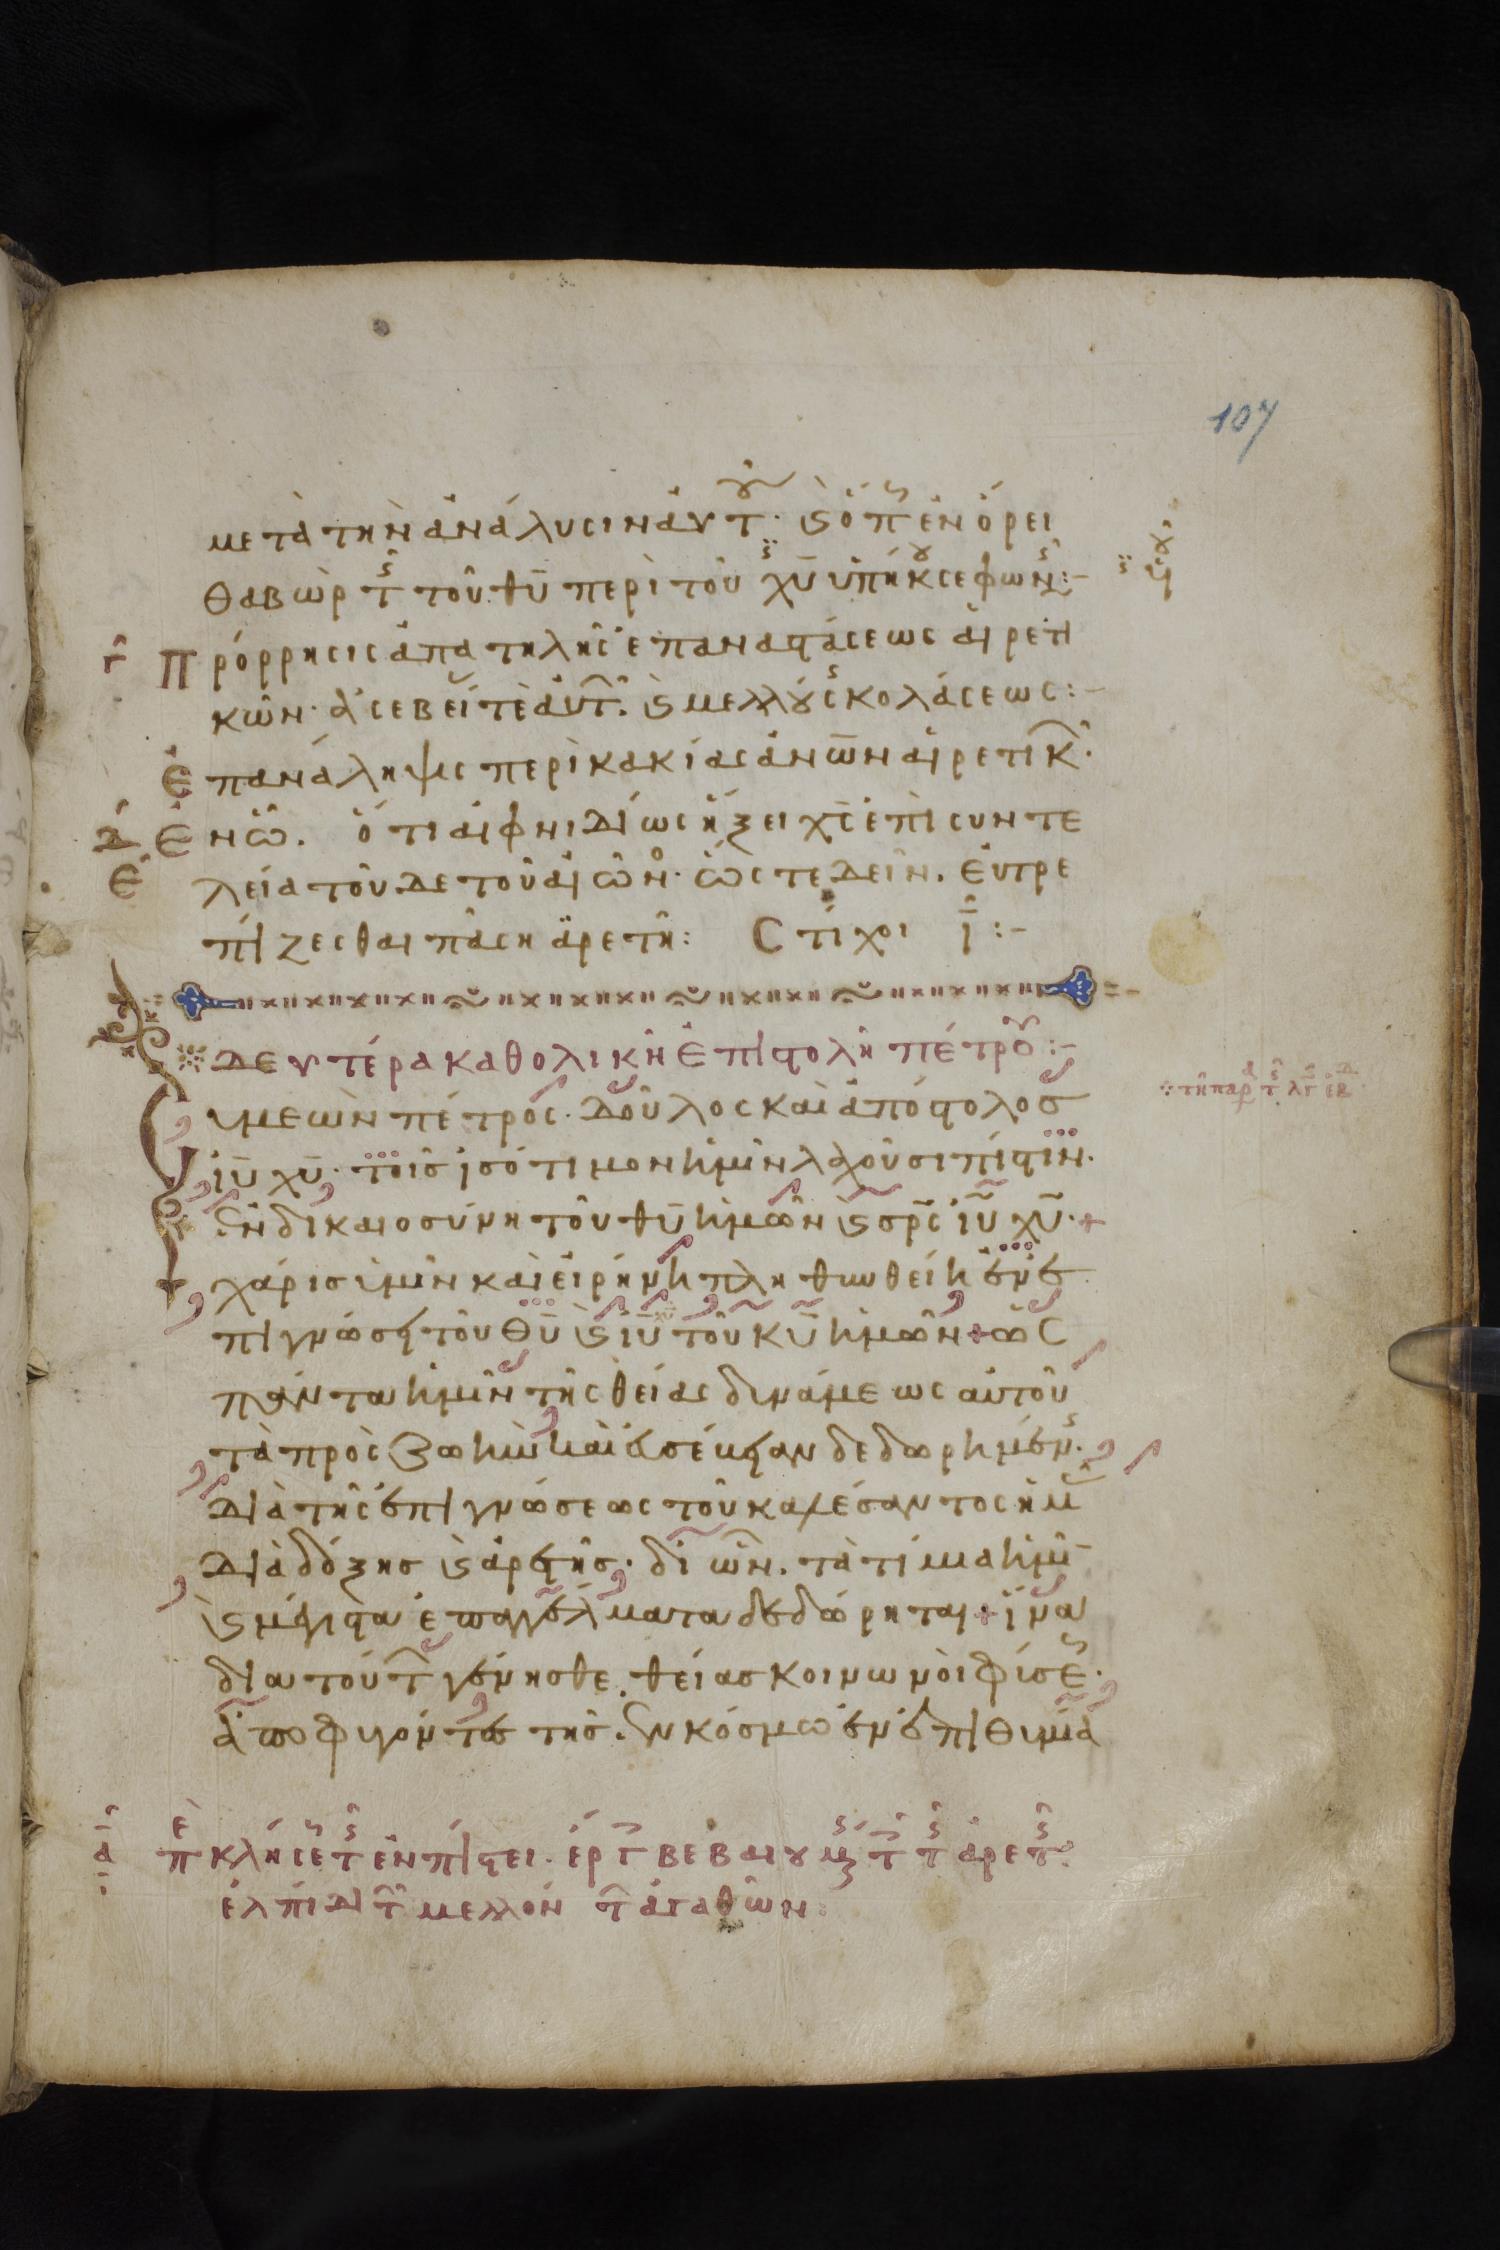 107
μετὰ τὴν ἀνάλυσιν ἀυτ· ϗ ὁπ ἐν ὄρει
θαβὼρ τ τοῦ θῡ περὶ τοῦ χῡ ὑπήκȣσε φων:-
γ Πρόρρησις ἀπατηλῆς ἐπαναστάσεως αἱρετι
κῶν· ἀσεβεί τὲ ἀυτ. ϗ μελλȣσ κολάσεως:-
Ἐπανάληψις περὶ κακίας ἀνω̄ν αἱρετικ·
Δ Ἐν ὧ. ὅτι αἰφνιδίως ἥξει χς̄ ἐπὶ συντε
Ε λεία τοῦδε τοῦ αἰῶν· ὥστε δεῖν. ἐυτρε
πίζεσθαι πάση ἀρετῆ: Στίχοι ι:-
Δευτέρα καθολικὴ Ἐπιστολὴ πέτρου:-
Συμεὼν πέτρος· δοῦλος καὶ ἀπόστολος
ἰῡ χῡ· τοῖς ἰσότιμον ἡμῖν λαχοῦσι πίστιν·
ἐν δικαιοσύνη τοῦ θῡ ἡμῶν ϗ σρ̄ς ἰῡ χῡ·+
χάρισ ὑμῖν καὶ εἰρήνη πληθυνθείη ἐν ἐ
πιγνώσει τοῦ θῡ ϗ ἰῡ τοῦ κῡ ἡμῶν + ὡς
πάντα ἡμῖν τῆς θείας δυνάμεως αὐτοῦ
τὰ πρὸς ζωὴν καὶ εὐσέβειαν δεδωρημέν·
διὰ τῆς ἐπιγνώσεως τοῦ καλέσαντος ἡμ
διὰ δόξης ϗ ἀρετῆς· δι ὧν. τὰ τίμια ἡμῖ
ϗ μέγιστα ἐπαγγέλματα δεδώρηται + ἵνα
δια τούτ γένησθε θείας κοινωνοὶ φύσε·
ἀποφυγόντες τῆς ἐν κόσμω ἐν ἐπιθυμία
α π κλήσε τ ἐν πίστει· ἐργ βεβαιȣμ τ τ ἀρετ
ἐλπίδι τ μελλόν τ ἀγαθῶν: